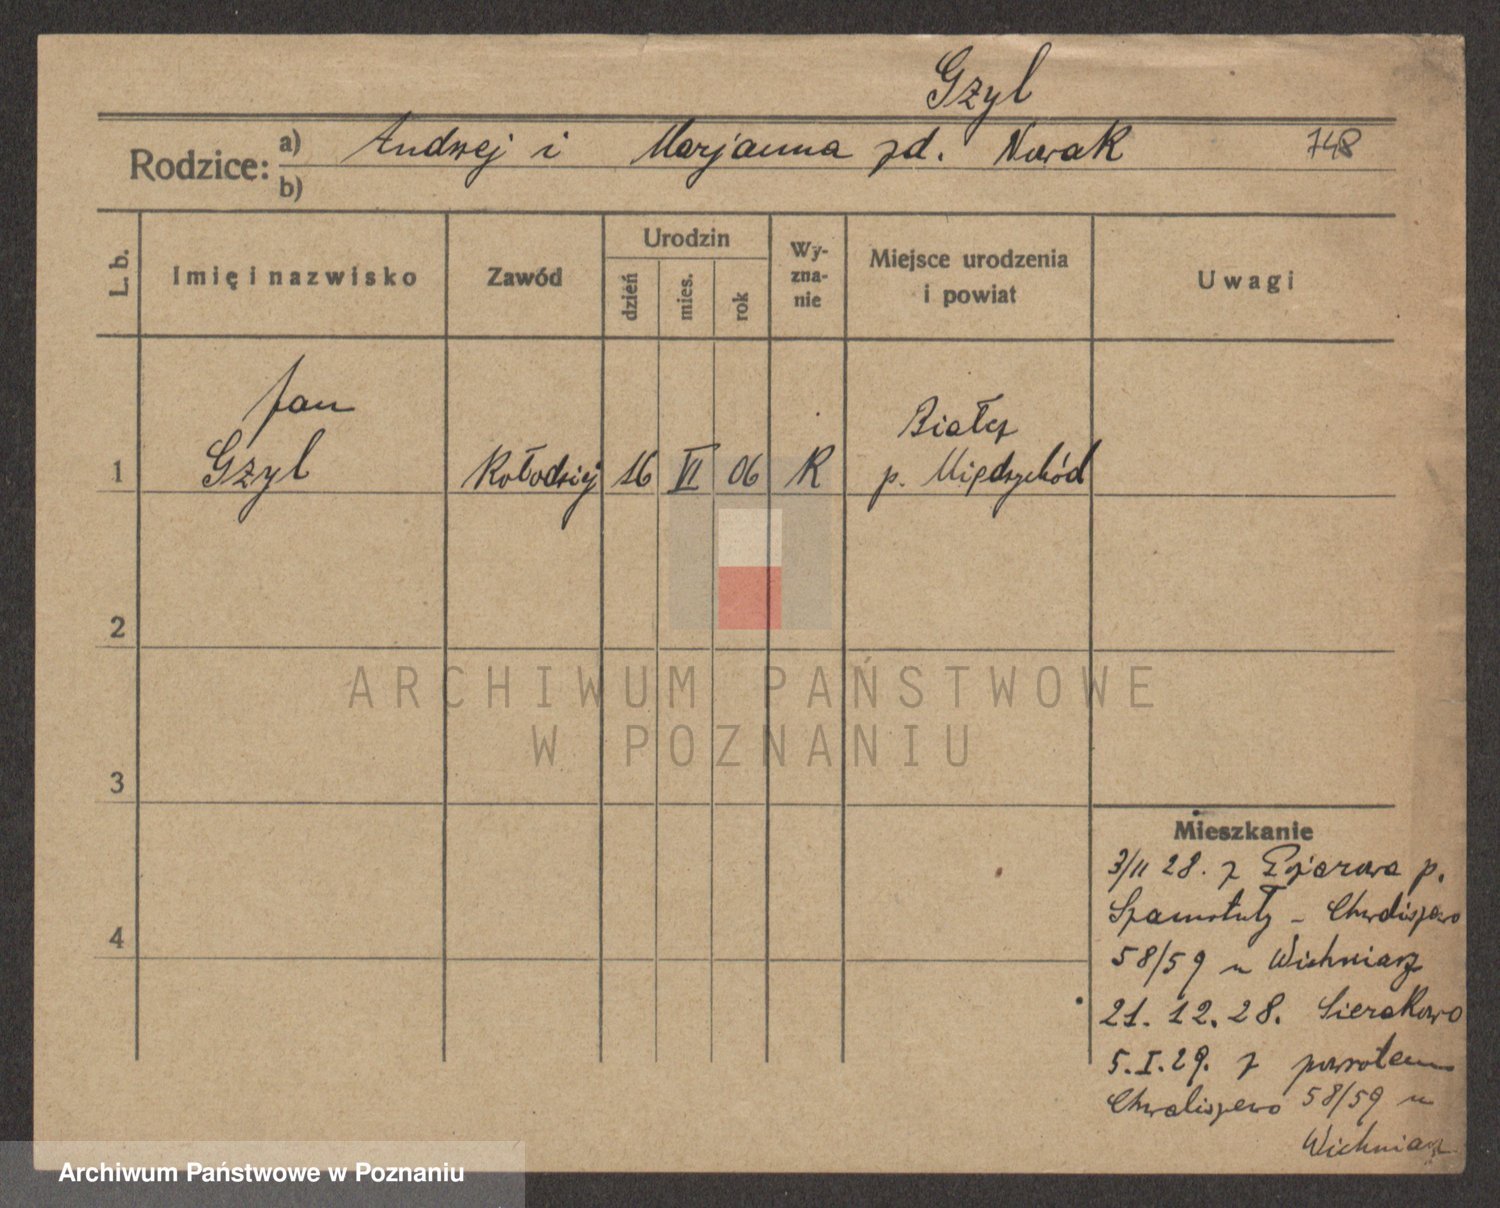 Gzyl
Rodzice:
a) Andrzej i Marjanna zd. Nowak 748
b)
L. b.
Imię i nazwisko
Zawód
Urodzin
dzień
mies.
rok
Wy-
zna-
nie
Miejsce urodzenia
i powiat
Uwagi
Jan
1 Gzyl Kołodziej 16 VI 06 K
Białcz
p. Międzychód
2
ARCHIWUM PAŃSTWOWE
W POZNANIU
3
4
Mieszkanie
3/II 28. z p.
Szamotuły - Chwaliszewo
58/59 u Wichniarz
21. 12. 28. Sierakowo
5. I. 29. z powrotem
Chwaliszewo 58/59 u
Wichniarz
Archiwum Państwowe w Poznaniu